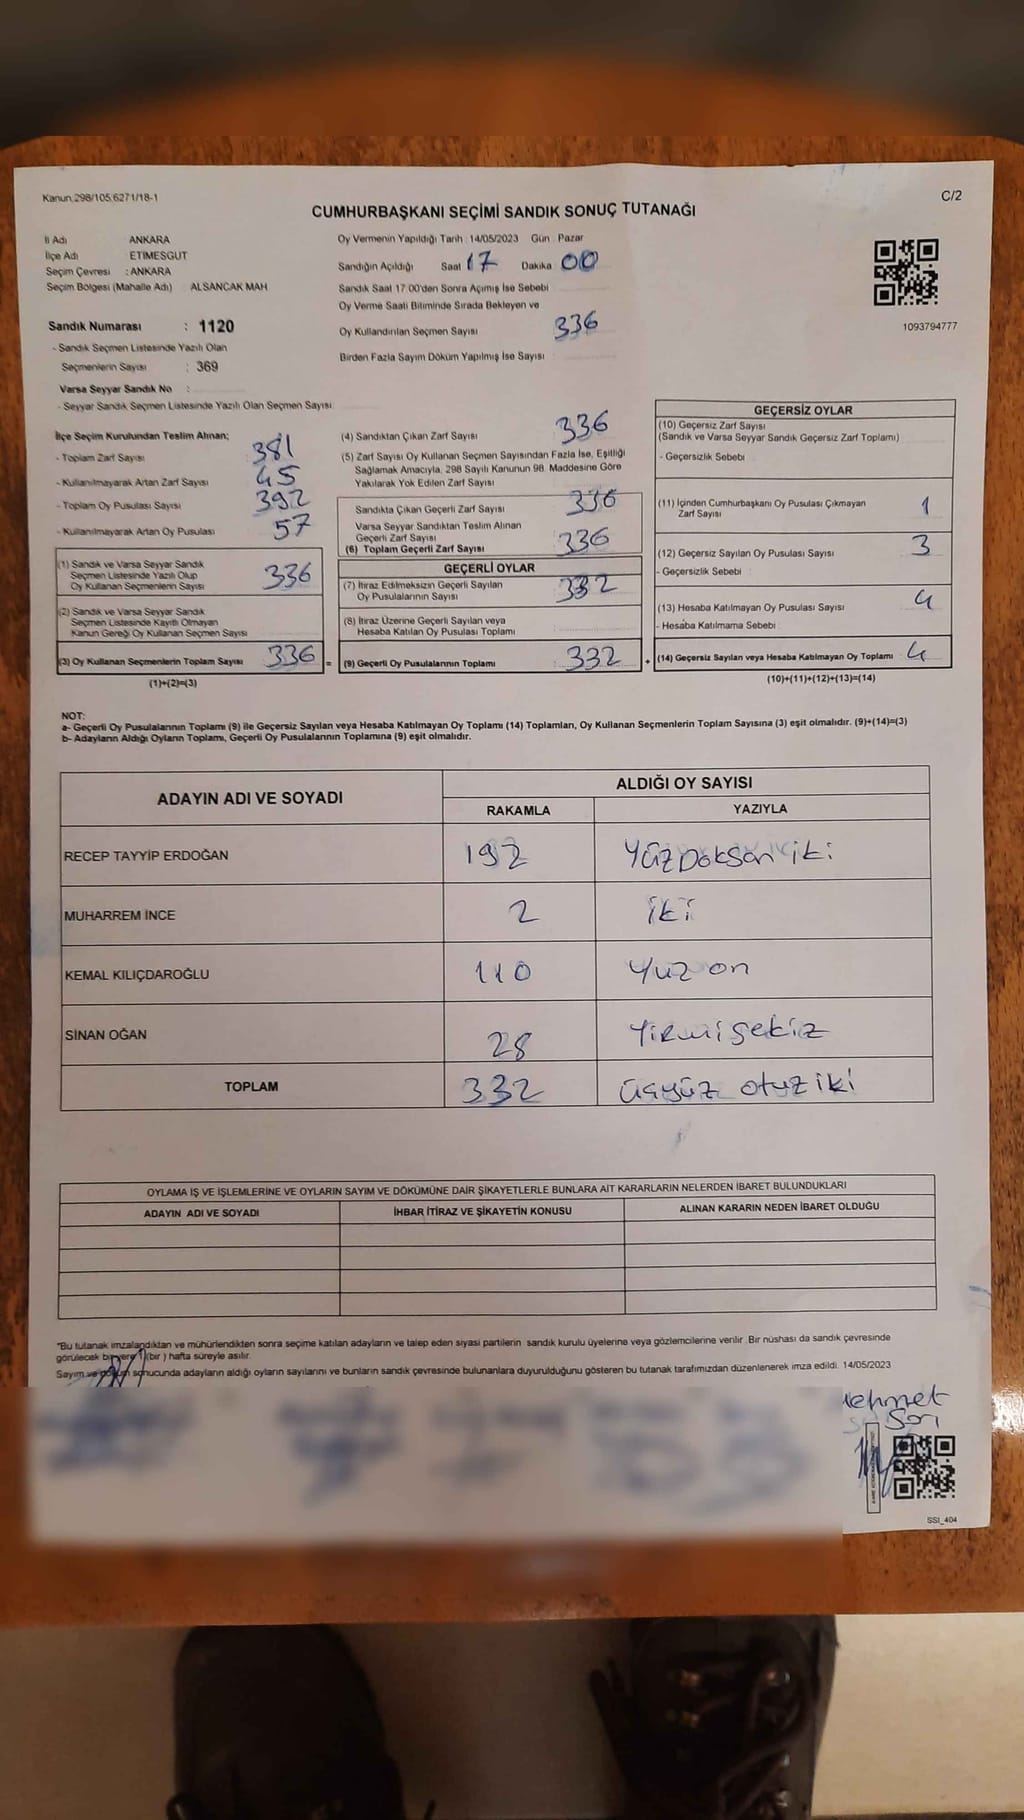 Kanun.298/105,6271/18-1
C/2
CUMHURBAŞKANI SEÇİMİ SANDIK SONUÇ TUTANAĞI
İl Adı ANKARA
İlçe Adı ETİMESGUT
Seçim Çevresi : ANKARA
Seçim Bölgesi (Mahalle Adı) ALSANCAK MAH
Sandık Numarası : 1120
- Sandık Seçmen Listesinde Yazılı Olan
Seçmenlerin Sayısı : 369
Varsa Seyyar Sandık No :
- Seyyar Sandık Seçmen Listesinde Yazılı Olan Seçmen Sayısı
Oy Vermenin Yapıldığı Tarih 14/05/2023 Gün Pazar
Sandığın Açıldığı Saat 17 Dakika 00
Sandık Saat 17:00'den Sonra Açımış İse Sebebi
Oy Verme Saati Bitiminde Sırada Bekleyen ve
Oy Kullandırılan Seçmen Sayısı 336
Birden Fazla Sayım Döküm Yapılmış İse Sayısı
1093794777
İlçe Seçim Kurulundan Teslim Alınan;
- Toplam Zarf Sayısı 381
- Kullanılmayarak Artan Zarf Sayısı 45
- Toplam Oy Pusulası Sayısı 392
- Kullanılmayarak Artan Oy Pusulası 57
(1) Sandık ve Varsa Seyyar Sandık
Seçmen Listesinde Yazılı Olup
Oy Kullanan Seçmenlerin Sayısı 336
(2) Sandık ve Varsa Seyyar Sandık
Seçmen Listesinde Kayıtlı Olmayan
Kanun Gereği Oy Kullanan Seçmen Sayısı
(3) Oy Kullanan Seçmenlerin Toplam Sayısı 336 =
(1)+(2)=(3)
(4) Sandıktan Çıkan Zarf Sayısı 336
(5) Zarf Sayısı Oy Kullanan Seçmen Sayısından Fazla İse, Eşitliği
Sağlamak Amacıyla, 298 Sayılı Kanunun 98. Maddesine Göre
Yakılarak Yok Edilen Zarf Sayısı
Sandıkta Çıkan Geçerli Zarf Sayısı 336
Varsa Seyyar Sandıktan Teslim Alınan
Geçerli Zarf Sayısı
(6) Toplam Geçerli Zarf Sayısı 336
GEÇERLİ OYLAR
(7) İtiraz Edilmeksizin Geçerli Sayılan
Oy Pusulalarının Sayısı 332
(8) İtiraz Üzerine Geçerli Sayılan veya
Hesaba Katılan Oy Pusulası Toplamı
(9) Geçerli Oy Pusulalarının Toplamı 332 +
GEÇERSİZ OYLAR
(10) Geçersiz Zarf Sayısı
(Sandık ve Varsa Seyyar Sandık Geçersiz Zarf Toplamı)
- Geçersizlik Sebebi
(11) İçinden Cumhurbaşkanı Oy Pusulası Çıkmayan
Zarf Sayısı 1
(12) Geçersiz Sayılan Oy Pusulası Sayısı 3
- Geçersizlik Sebebi
(13) Hesaba Katılmayan Oy Pusulası Sayısı 4
- Hesaba Katılmama Sebebi
(14) Geçersiz Sayılan veya Hesaba Katılmayan Oy Toplamı 4
(10)+(11)+(12)+(13)=(14)
NOT:
a- Geçerli Oy Pusulalarının Toplamı (9) ile Geçersiz Sayılan veya Hesaba Katılmayan Oy Toplamı (14) Toplamları, Oy Kullanan Seçmenlerin Toplam Sayısına (3) eşit olmalıdır. (9)+(14)=(3)
b- Adayların Aldığı Oyların Toplamı, Geçerli Oy Pusulalarının Toplamına (9) eşit olmalıdır.
ADAYIN ADI VE SOYADI ALDIĞI OY SAYISI
RAKAMLA YAZIYLA
RECEP TAYYİP ERDOĞAN 192 Yüz Doksan iki
MUHARREM İNCE 2 iki
KEMAL KILIÇDAROĞLU 110 Yuz on
SİNAN OĞAN 28 Yirmi şekiz
TOPLAM 332 üçyüz otuz iki
OYLAMA İŞ VE İŞLEMLERİNE VE OYLARIN SAYIM VE DÖKÜMÜNE DAİR ŞİKAYETLERLE BUNLARA AİT KARARLARIN NELERDEN İBARET BULUNDUKLARI
ADAYIN ADI VE SOYADI İHBAR İTİRAZ VE ŞİKAYETİN KONUSU ALINAN KARARIN NEDEN İBARET OLDUĞU
*Bu tutanak imzalandıktan ve mühürlendikten sonra seçime katılan adayların ve talep eden siyasi partilerin sandık kurulu üyelerine veya gözlemcilerine verilir. Bir nüshası da sandık çevresinde
görülecek bir yere 1 (bir) hafta süreyle asılır.
Sayım ve döküm sonucunda adayların aldığı oyların sayılarını ve bunların sandık çevresinde bulunanlara duyurulduğunu gösteren bu tutanak tarafımızdan düzenlenerek imza edildi. 14/05/2023
Mehmet
SSI_404